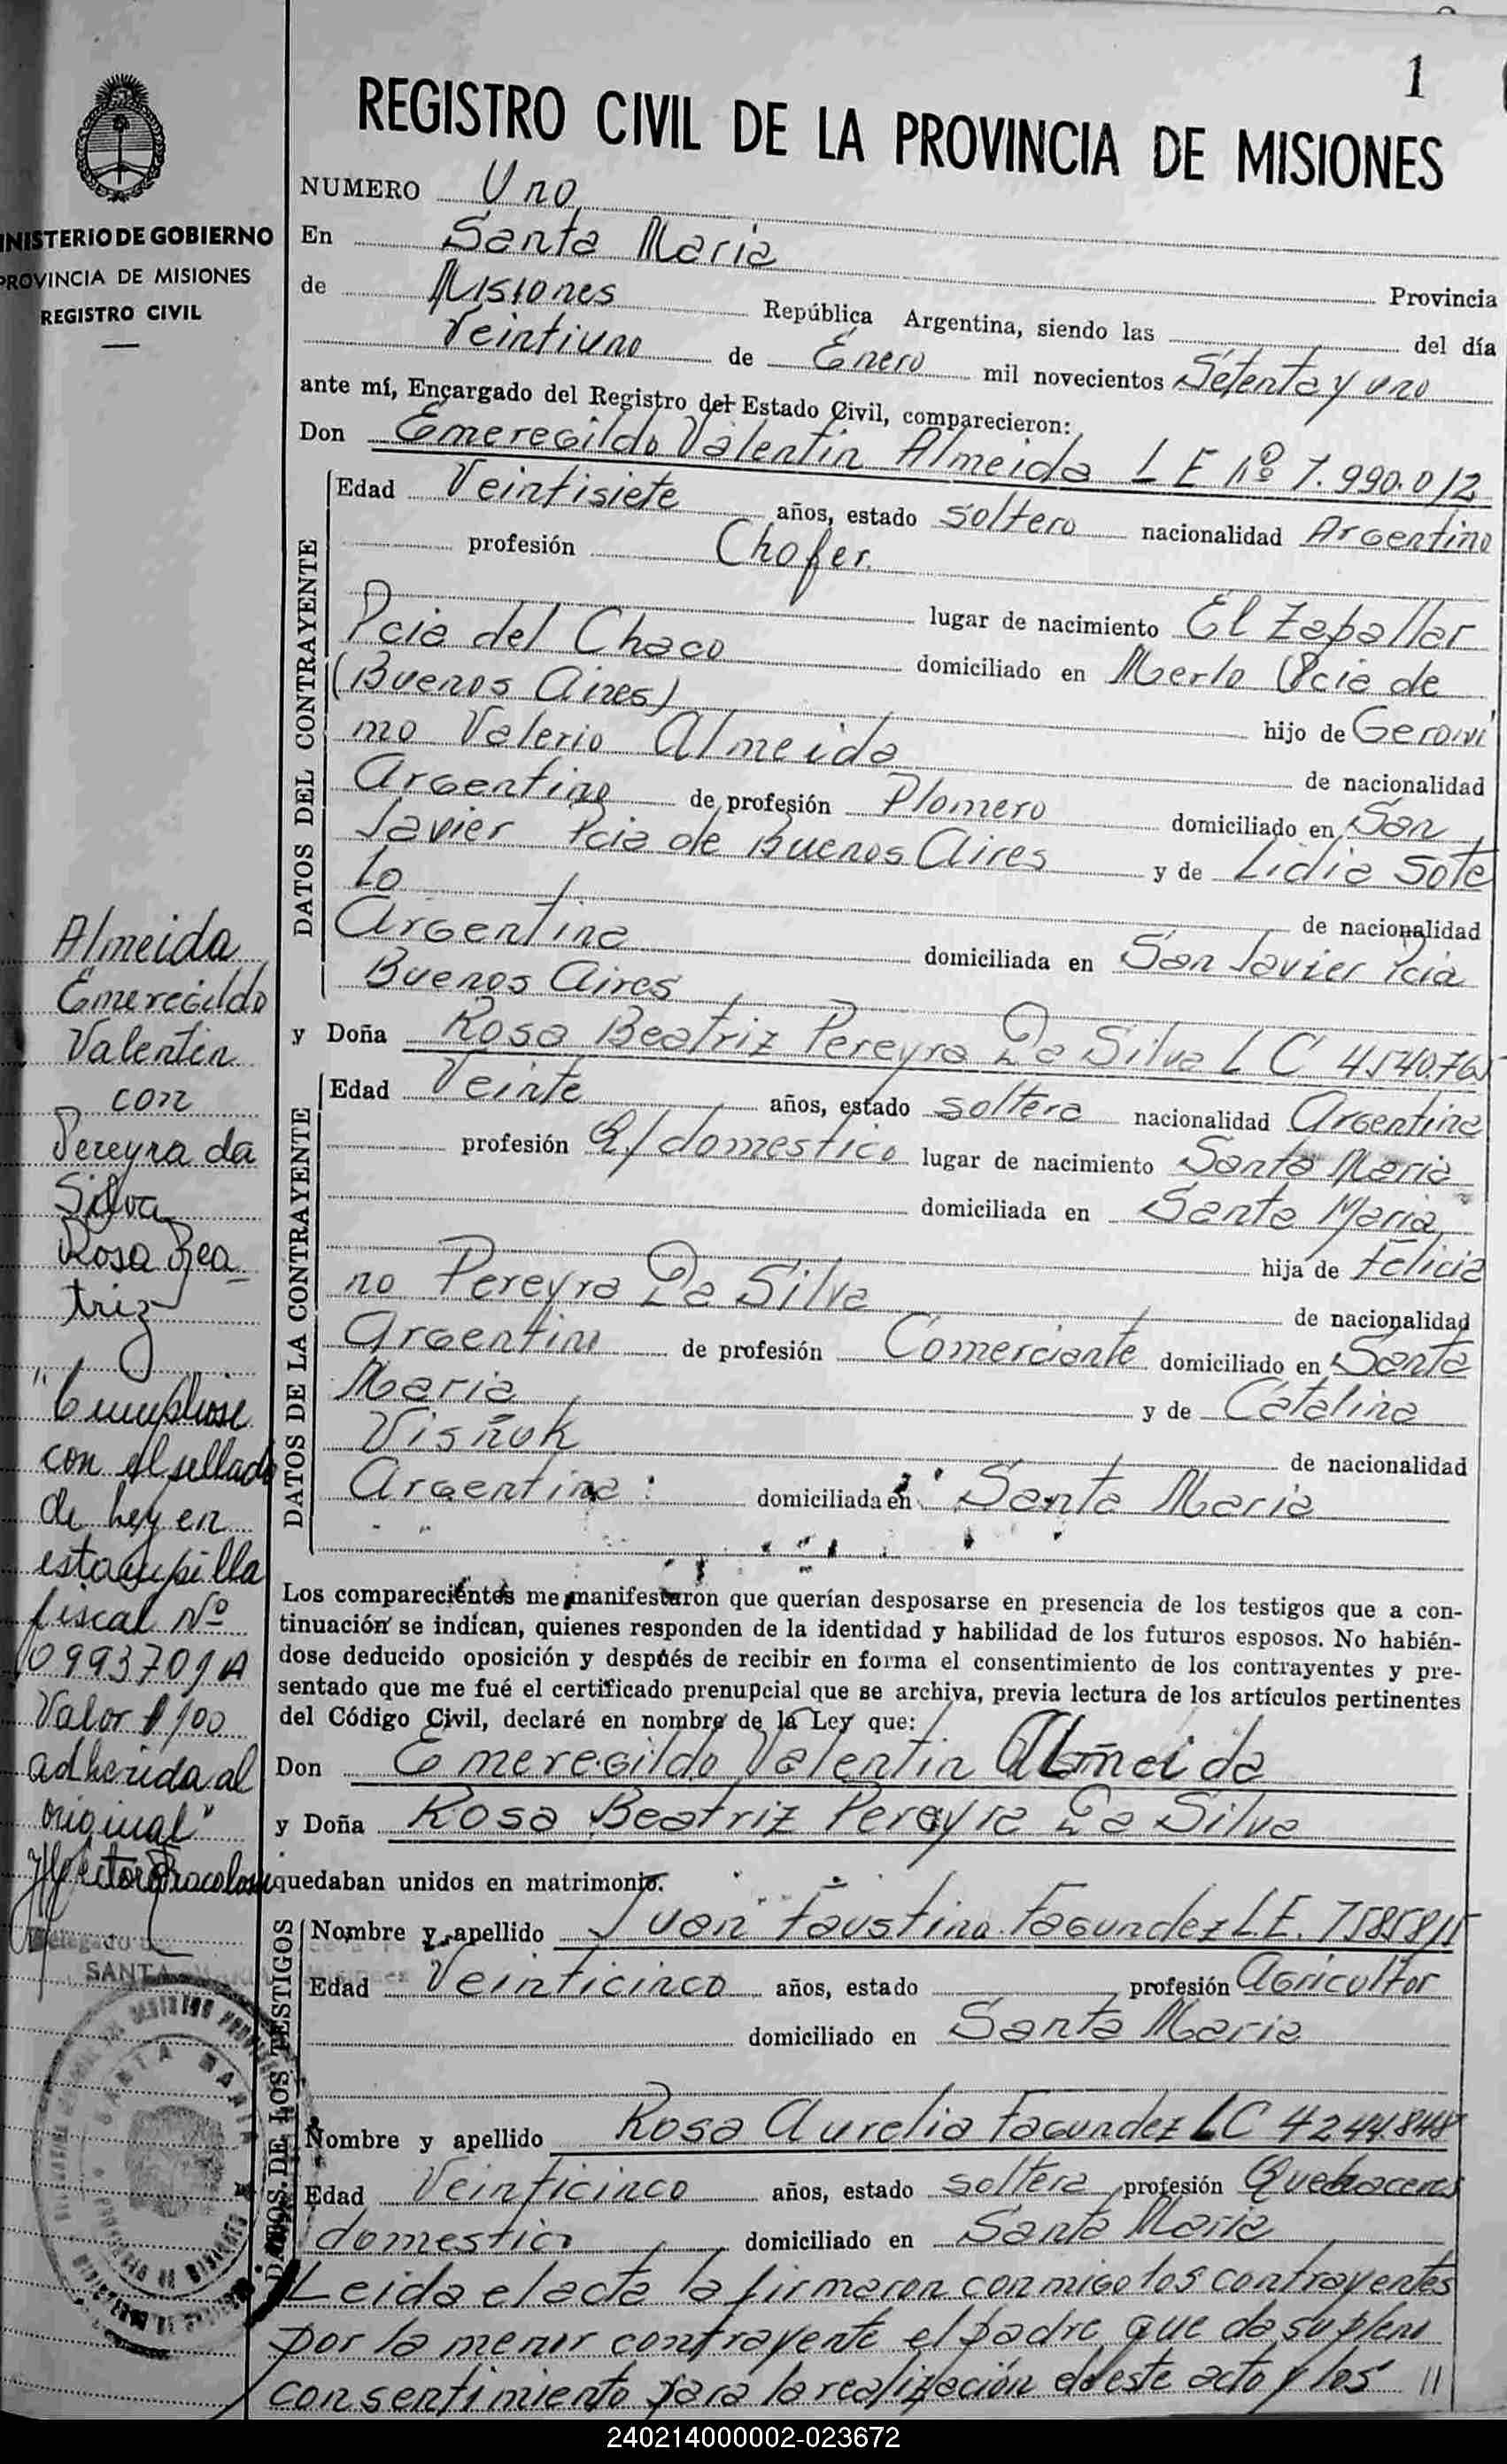 1
REGISTRO CIVIL DE LA PROVINCIA DE MISIONES
INISTERIO DE GOBIERNO
PROVINCIA DE MISIONES
REGISTRO CIVIL
NUMERO Uno
En Santa Maria Provincia
de Misiones República Argentina, siendo las del día
Veintiuno de Enero mil novecientos Setenta y uno
ante mí, Encargado del Registro del Estado Civil, comparecieron:
Don Emeregildo Valentin Almeida L E Nº 7.990.012
DATOS DEL CONTRAYENTE
Edad Veintisiete años, estado soltero nacionalidad Argentino
profesión Chofer.
lugar de nacimiento El Zapallar
Pcia del Chaco domiciliado en Merlo (Pcia de
(Buenos Aires) hijo de Geroni
mo Valerio Almeida de nacionalidad
Argentino de profesión Plomero domiciliado en San
Javier Pcia de Buenos Aires y de Lidia Sote
lo de nacionalidad
Argentina domiciliada en San Javier Pcia
Buenos Aires
y Doña Rosa Beatriz Pereyra Da Silva L C
DATOS DE LA CONTRAYENTE
Edad Veinte años, estado soltera nacionalidad Argentina
profesión Q/domestico lugar de nacimiento Santa Maria
domiciliada en Santa Maria
hija de Felicia
no Pereyra Da Silva de nacionalidad
Argentino de profesión Comerciante domiciliado en Santa
Maria y de Catalina
Visñuk de nacionalidad
Argentina: domiciliada en Santa Maria
Los comparecientes me manifestaron que querían desposarse en presencia de los testigos que a con-
tinuación se indican, quienes responden de la identidad y habilidad de los futuros esposos. No habién-
dose deducido oposición y después de recibir en forma el consentimiento de los contrayentes y pre-
sentado que me fué el certificado prenupcial que se archiva, previa lectura de los artículos pertinentes
del Código Civil, declaré en nombre de la Ley que:
Don Emeregildo Valentin Almeida
y Doña Rosa Beatriz Pereyra Da Silva
quedaban unidos en matrimonio.
DATOS DE LOS TESTIGOS
Nombre y apellido Juan Faustino Fagundez L.E.
Edad Veinticinco años, estado profesión Agricultor
domiciliado en Santa Maria
Nombre y apellido Rosa Aurelia Fagundez LC 4244.848
Edad Veinticinco años, estado soltera profesión Quehaceres
domestico domiciliado en Santa Maria
Leida el acta la firmaron conmigo los contrayentes
por la menor contrayente el padre que da su pleno
consentimiento para la realización de este acto y los //
Almeida
Emeregildo
Valentin
con
Pereyra da
Silva
Rosa Bea
triz
"Cumpliose
con el sellado
de ley en
estampilla
fiscal Nº
09937091A
Valor $ 100
adherida al
original"
SANTA
SANTA MARIA
240214000002-023672